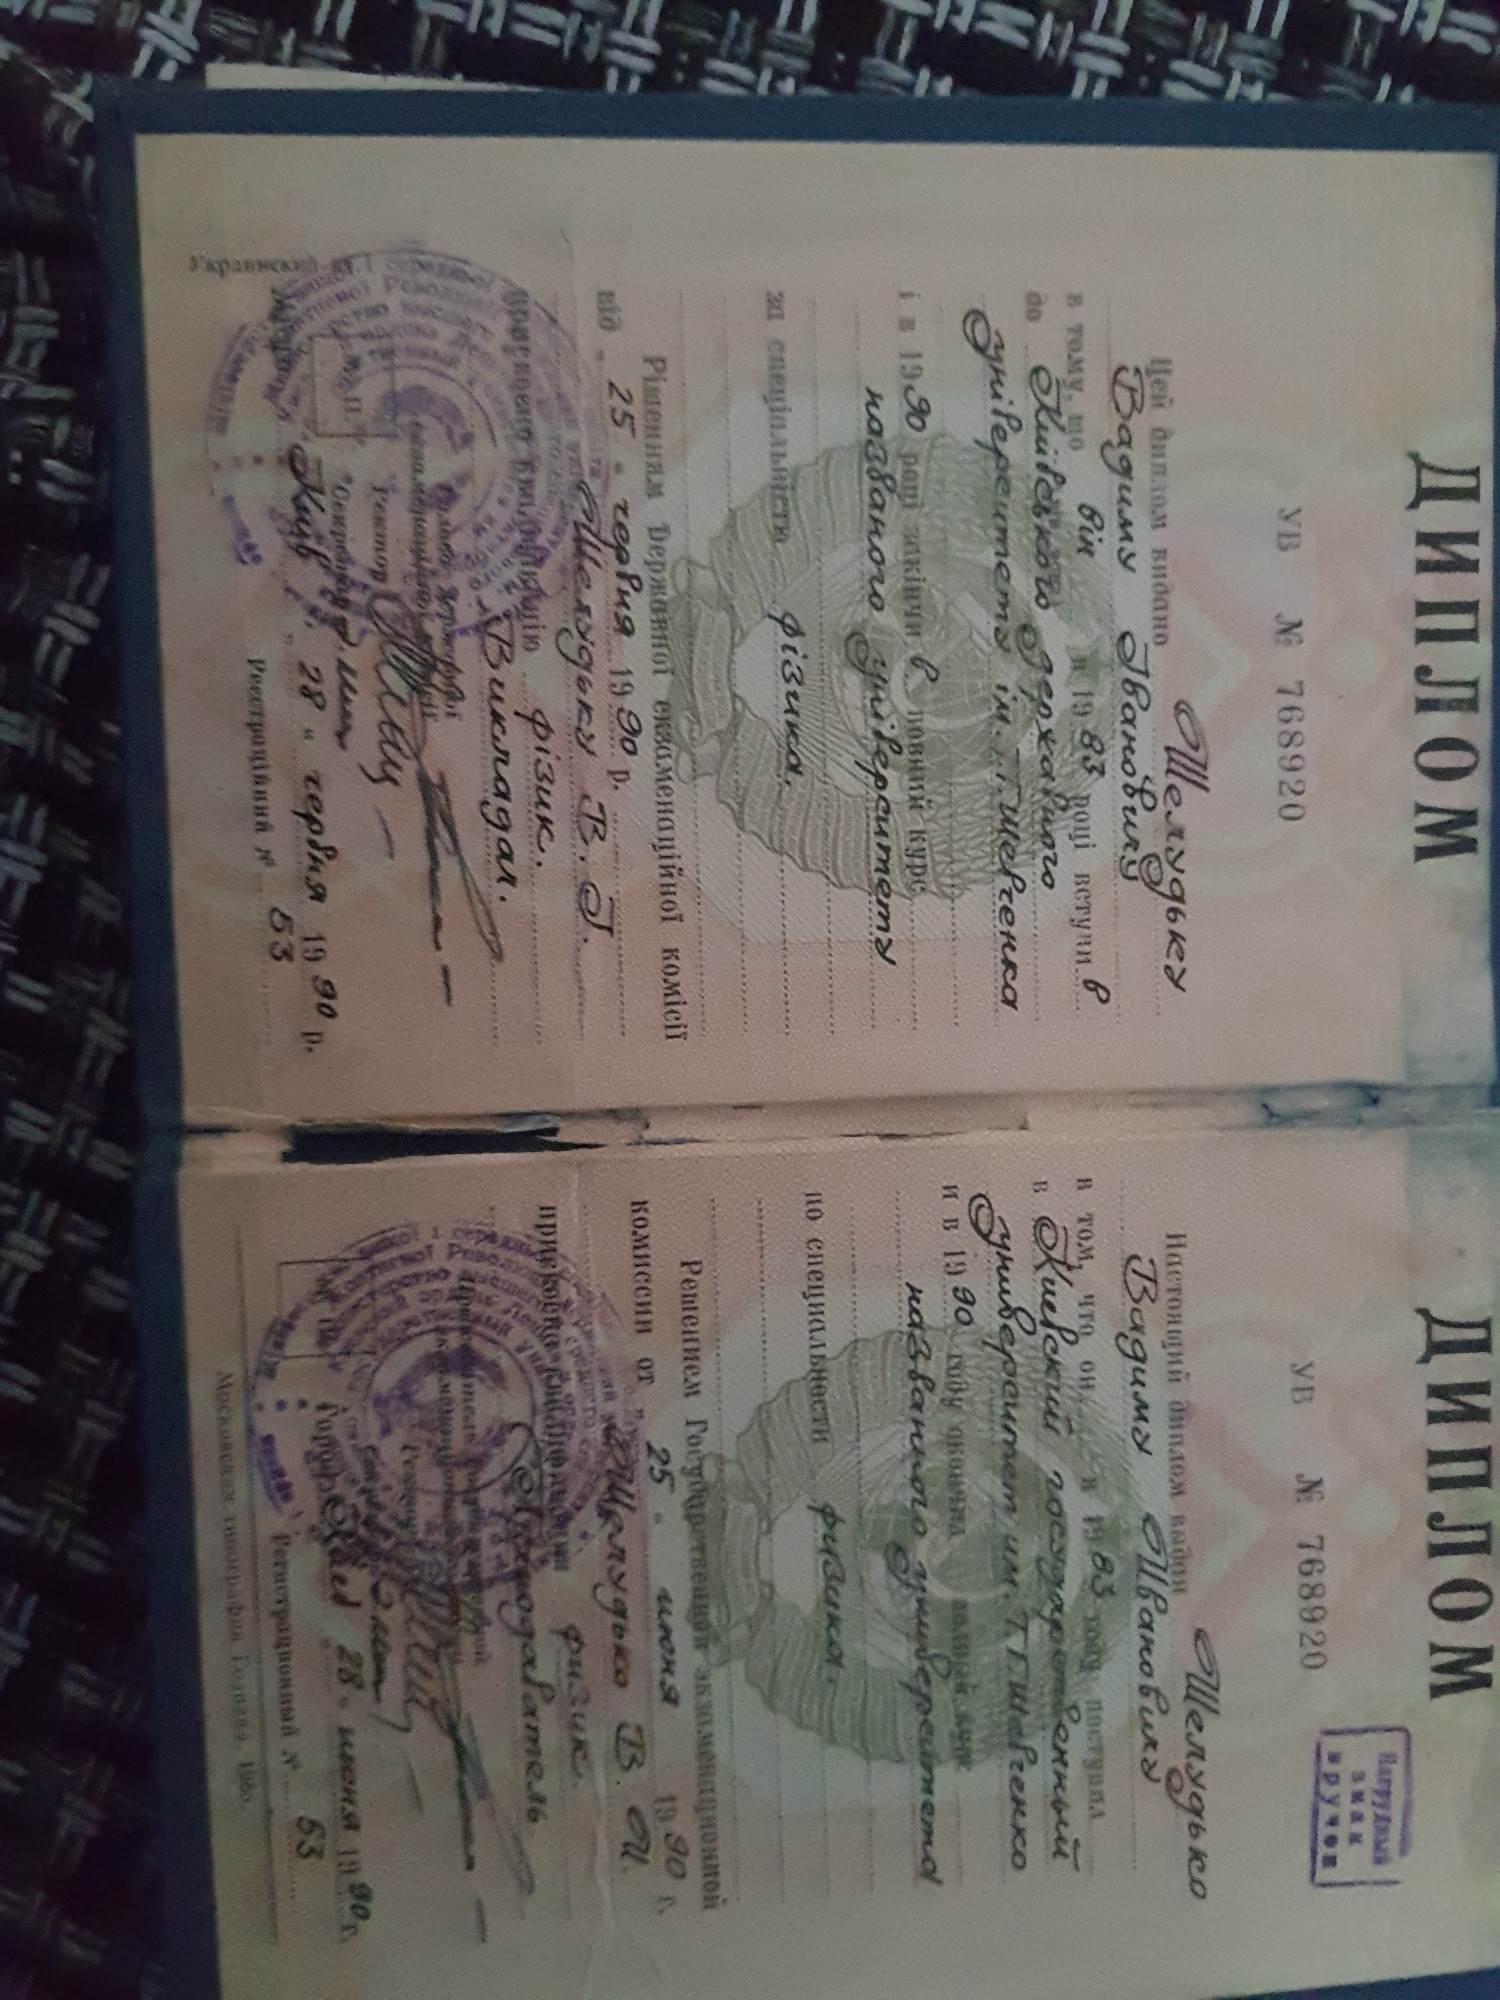 ДИПЛОМ
УВ № 768920
Цей диплом видано Шелудьку
Вадиму Івановичу
в тому, що він в 1983 році вступи в
до Київського державного
університету ім. Т.Г.Шевченка
і в 1990 році закінчи в повний курс
названого університету
за спеціальністю фізика.
Рішенням Державної екзаменаційної комісії
від „ 25 “ червня 1990 р.
Шелудьку В. І.
присвоєно кваліфікацію фізик.
Викладач.
Голова Державної
екзаменаційної комісії
Ректор
Секретар
М. П.
Київ „ 28 “ червня 1990 р.
Реєстраційний № 53
ДИПЛОМ
Нагрудный
знак
вручен
УВ № 768920
Настоящий диплом выдан Шелудько
Вадиму Ивановичу
в том, что он в 1983 году поступил
в Киевский государственный
университет им. Т.Г.Шевченко
и в 1990 году окончил полный курс
названного университета
по специальности физика.
Решением Государственной экзаменационной
комиссии от „ 25 “ июня 1990 г.
Шелудько В. И.
присвоена квалификация физик.
Преподаватель
Город Киев 28 „ июня 1990 г.
Регистрационный № 53
Московская типография Гознака. 198